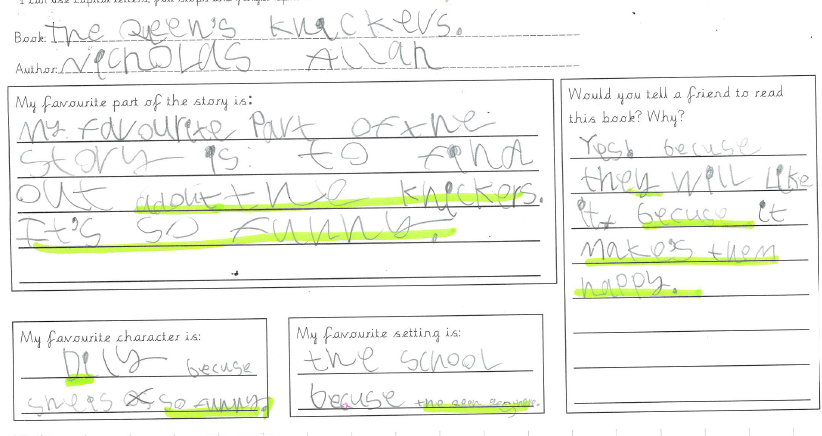 Book: The Qeen's knickers.
Author: Nicholas Allan
My favourite part of the story is:
My favourite part of the
story is: to find
out adout the knickers.
It's so funny.
Would you tell a friend to read
this book? Why?
Yes! becuse
they will like
it becuse it
makes them
happy.
My favourite character is:
Dily becuse
so funny.
My favourite setting is:
the school
becuse the